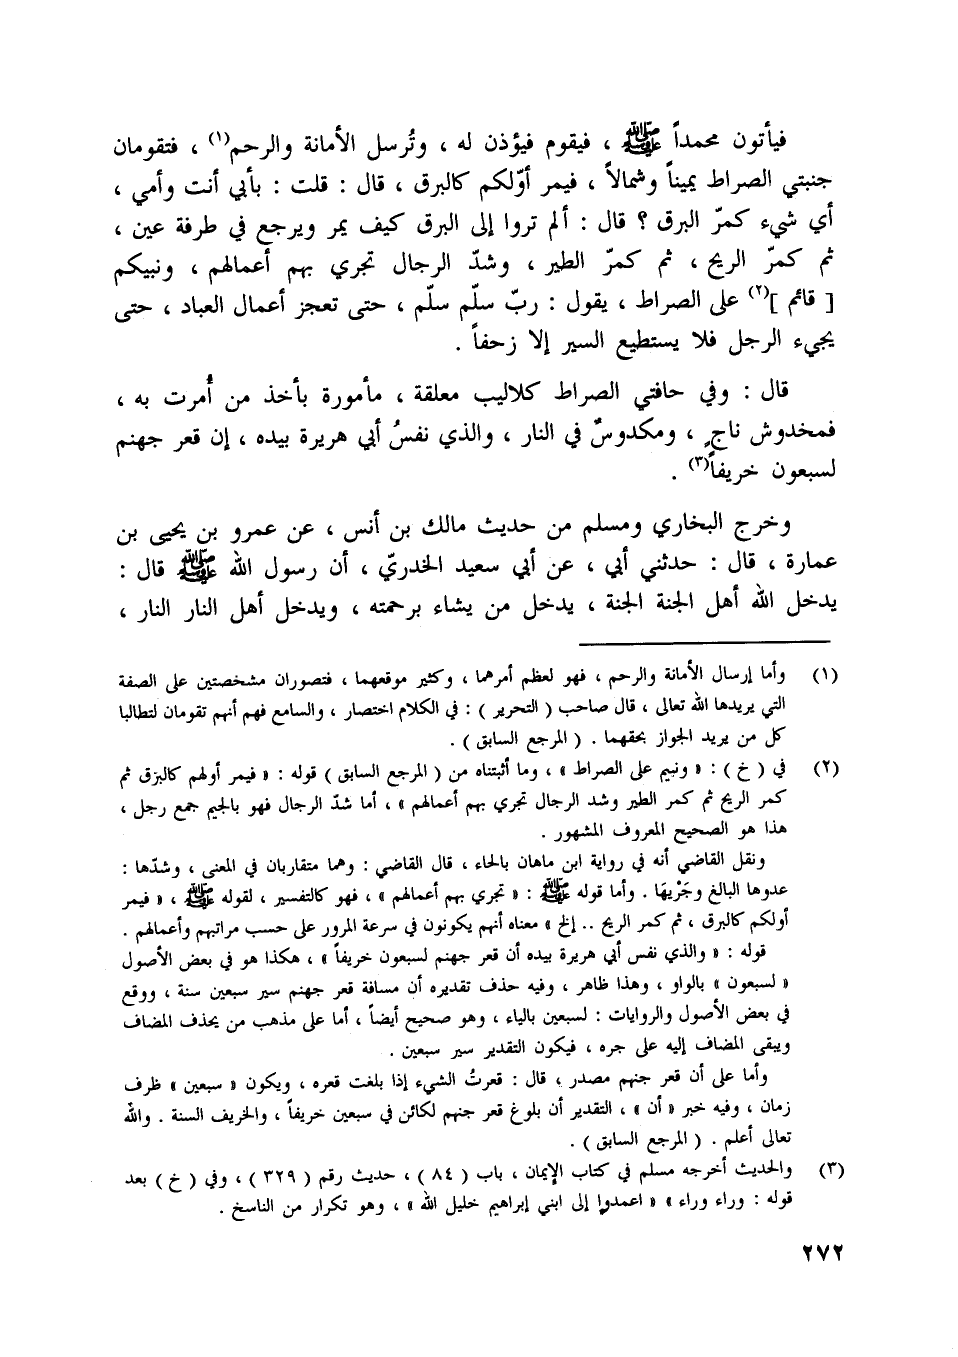 فيأتون محمداً ﷺ ، فيقوم فيؤذن له ، وتُرسل الأمانة والرحم(١) ، فتقومان
جنبتي الصراط يميناً وشمالاً ، فيمر أوّلكم كالبرق ، قال : قلت : بأبي أنت وأمي ،
أي شيء كمرّ البرق ؟ قال : ألم تروا إلى البرق كيف يمر ويرجع في طرفة عين ،
ثم كمرّ الريح ، ثم كمرّ الطير ، وشدّ الرجال تجري بهم أعمالهم ، ونبيكم
[ قائم ](٢) على الصراط ، يقول : ربّ سلّم سلّم ، حتى تعجز أعمال العباد ، حتى
يجيء الرجل فلا يستطيع السير إلا زحفاً .
قال : وفي حافتي الصراط كلاليب معلقة ، مأمورة بأخذ من أُمرت به ،
فمخدوش ناجٍ ، ومكدوسٌ في النار ، والذي نفسُ أبي هريرة بيده ، إن قعر جهنم
لسبعون خريفاً(٣) .
وخرج البخاري ومسلم من حديث مالك بن أنس ، عن عمرو بن يحيى بن
عمارة ، قال : حدثني أبي ، عن أبي سعيد الخدريّ ، أن رسول الله ﷺ قال :
يدخل الله أهل الجنة الجنة ، يدخل من يشاء برحمته ، ويدخل أهل النار النار ،
(١) وأما إرسال الأمانة والرحم ، فهو لعظم أمرهما ، وكثير موقعهما ، فتصوران مشخصتين على الصفة
التي يريدها الله تعالى ، قال صاحب ( التحرير ) : في الكلام اختصار ، والسامع فهم أنهم تقومان لتطالبا
كل من يريد الجواز بحقهما . ( المرجع السابق ) .
(٢) في ( خ ) : « ونبيم على الصراط » ، وما أثبتناه من ( المرجع السابق ) قوله : « فيمر أولهم كالبرق ثم
كمر الريح ثم كمر الطير وشد الرجال تجري بهم أعمالهم » ، أما شدّ الرجال فهو بالجيم جمع رجل ،
هذا هو الصحيح المعروف المشهور .
ونقل القاضي أنه في رواية ابن ماهان بالحاء ، قال القاضي : وهما متقاربان في المعنى ، وشدّها :
عدوها البالغ وجَرْيهَا . وأما قوله ﷺ : « تجري بهم أعمالهم » ، فهو كالتفسير ، لقوله ﷺ ، « فيمر
أولكم كالبرق ، ثم كمر الريح .. إلخ » معناه أنهم يكونون في سرعة المرور على حسب مراتبهم وأعمالهم .
قوله : « والذي نفس أبي هريرة بيده أن قعر جهنم لسبعون خريفاً » ، هكذا هو في بعض الأصول
« لسبعون » بالواو ، وهذا ظاهر ، وفيه حذف تقديره أن مسافة قعر جهنم سير سبعين سنة ، ووقع
في بعض الأصول والروايات : لسبعين بالياء ، وهو صحيح أيضاً ، أما على مذهب من يحذف المضاف
ويبقى المضاف إليه على جره ، فيكون التقدير سير سبعين .
وأما على أن قعر جنهم مصدر ، قال : قعرتُ الشيء إذا بلغت قعره ، ويكون « سبعين » ظرف
زمان ، وفيه خبر « أن » ، التقدير أن بلوغ قعر جنهم لكائن في سبعين خريفاً ، والخريف السنة . والله
تعالى أعلم . ( المرجع السابق ) .
(٣) والحديث أخرجه مسلم في كتاب الإيمان ، باب ( ٨٤ ) ، حديث رقم ( ٣٢٩ ) ، وفي ( خ ) بعد
قوله : وراء وراء » « اعمدوا إلى ابني إبراهيم خليل الله » ، وهو تكرار من الناسخ .
٢٧٢